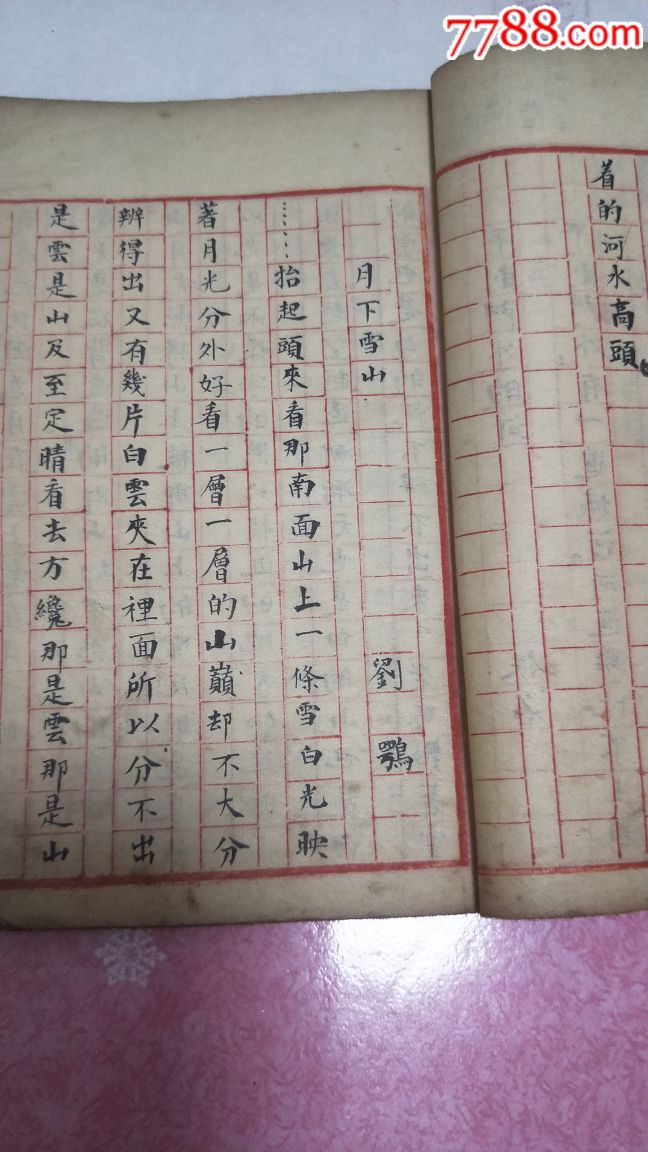 7788.com
着的河水高頭
月下雪山
劉鶚
……抬起頭來看那南面山上一條雪白光映
著月光分外好看一層一層的山巔却不大分
辨得出又有幾片白雲夾在裡面所以分不出
是雲是山及至定晴看去方纔那是雲那是山